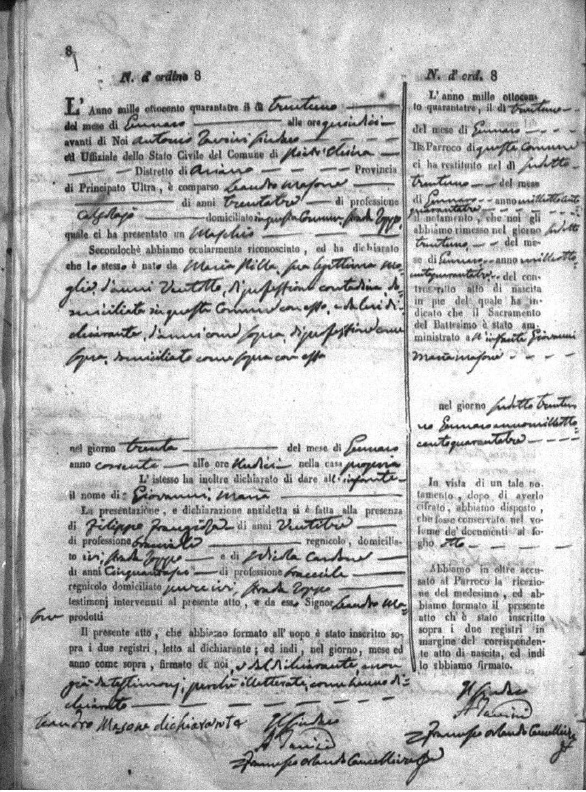 8
N. d' ordine 8
L' Anno mille ottocento quarantatre il dì trentuno
del mese di Gennaro alle ore quindici
avanti di Noi Antonio Sindaco
ed Uffiziale dello Stato Civile del Comune di
Distretto di Ariano Provincia
di Principato Ultra, è comparso Leandro Masone
di anni trentatre di professione
domiciliato in questo Comune strada
quale ci ha presentato un Maschio
Secondochè abbiamo ocularmente riconosciuto, ed ha dichiarato
che lo stesso è nato da Maria sua legittima mo
glie, d'anni Ventotto, di professione contadina do
miciliata in questo Comune con esso, e da lui di
chiarante, d'anni come sopra, di professione come
sopra, domiciliato come sopra con essa
nel giorno trenta del mese di Gennaro
anno corrente alle ore undici nella casa propria
L' istesso ha inoltre dichiarato di dare all' infante
il nome di Giovanni Maria
La presentazione, e dichiarazione anzidetta si è fatta alla presenza
di Filippo di anni Ventitre
di professione bracciale regnicolo, domicilia-
to ivi strada e di Nicola Cardone
di anni Cinquantasei di professione bracciale
regnicolo domiciliato pure ivi, strada
testimonj intervenuti al presente atto, e da esso Signor Leandro Ma
sone prodotti
Il presente atto, che abbiamo formato all' uopo è stato inscritto so-
pra i due registri, letto al dichiarante; ed indi, nel giorno, mese ed
anno come sopra, firmato da noi, e dal dichiarante e non
già da testimonj, perchè illetterati, come hanno di
chiarato
Leandro Masone dichiarante
Il Sindaco
Francesco Orlando Cancelliere
N. d' ord. 8
L' anno mille ottocen-
to quarantatre, il dì trentuno
del mese di Gennaro
Il Parroco di questo Comune
ci ha restituito nel dì suddetto
trentuno del mese
di Gennaro anno milleottocento
quarantatre
notamento, che noi gli
abbiamo rimesso nel giorno suddetto
trentuno del me-
se di Gennaro anno milleotto
centoquarantatre del con-
troscritto atto di nascita
in piè del quale ha in-
dicato che il Sacramento
del Battesimo è stato am-
ministrato a ll'infante Giovanni
Maria Masone
nel giorno suddetto trentu
no Gennaro anno milleotto
centoquarantatre
In vista di un tale no-
tamento, dopo di averlo
cifrato, abbiamo disposto,
che fosse conservato nel vo-
lume de' documenti al fo-
glio otto
Abbiamo in oltre accu-
sato al Parroco la ricezio-
ne del medesimo, ed ab-
biamo formato il presente
atto ch' è stato inscritto
sopra i due registri in
margine del corrisponden-
te atto di nascita, ed indi
lo abbiamo firmato.
Il Sindaco
Francesco Orlando Cancelliere